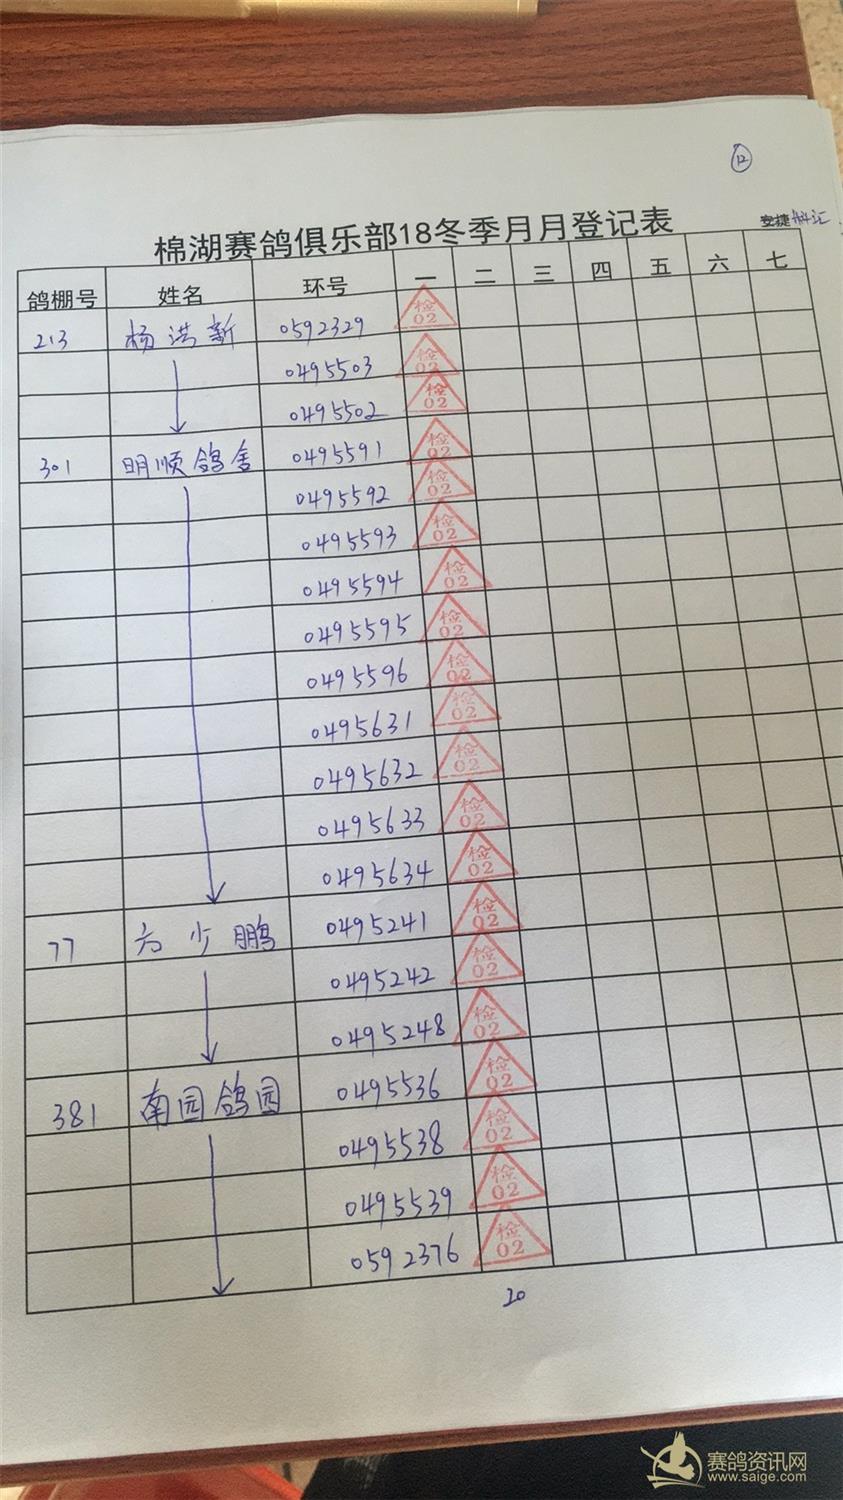 ⑫
棉湖赛鸽俱乐部18冬季月月登记表
安捷
鸽棚号 姓名 环号 一 二 三 四 五 六 七
213 杨洪新 0592329 检02
0495503 检02
0495502 检02
301 明顺鸽舍 0495591 检02
0495592 检02
0495593 检02
0495594 检02
0495595 检02
0495596 检02
0495631 检02
0495632 检02
0495633 检02
0495634 检02
77 方少鹏 0495241 检02
0495242 检02
0495248 检02
381 南园鸽园 0495536 检02
0495538 检02
0495539 检02
0592376 检02
20
赛鸽资讯网
www.saige.com